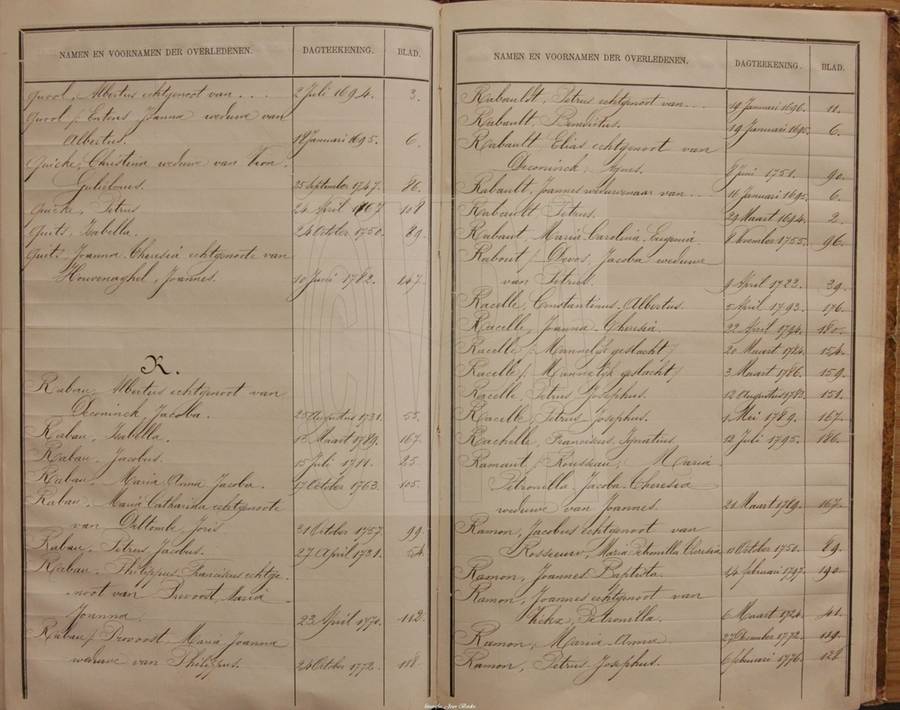 NAMEN EN VOORNAMEN DER OVERLEDENEN. DAGTEEKENING. BLAD.
Quool, Albertus echtgenoot van . . . 2 Juli 1694. 3.
Quool / Joanna weduwe van
Albertus. 18 Januari 1695. 6.
Quicke, Christina weduwe van
25 September 1747. 86.
Quicke, Petrus 24 April 1767 108
Quits, Isabella. 24 October 1750. 89.
Quits, Joanna Theresia echtgenoote van
Houvenaghel, Joannes. 10 Juni 1782. 147.
R.
Rabau, Albertus echtgenoot van
Deconinck, Jacoba. 25 Augustus 1731. 55.
Rabau, Isabella. 12 Maart 1789. 167.
Rabau, Jacobus. 15 Juli 1711. 25.
Rabau, Maria Anna Jacoba. 17 October 1763. 105.
Rabau, Maria Catharina echtgenoote
van Deltombe, Joris 31 October 1757. 99.
Rabau, Petrus Jacobus. 27 April 1731. 54.
Rabau, Philippus Franciscus echtge-
noot van Provoost, Maria
Joanna. 23 April 1771. 112.
Rabau / Provoost Maria Joanna
weduwe van Philippus. 24 October 1772. 118.
NAMEN EN VOORNAMEN DER OVERLEDENEN. DAGTEEKENING. BLAD.
Rabauldt, Petrus echtgenoot van . . 19 Januari 1696. 11.
Rabault, Benedictus. 19 Januari 1695. 6.
Rabault, Elias echtgenoot van
Deconinck, Agnes. Juni 1751. 90.
Rabault, Joannes weduwenaar van . . 16 Januari 1695. 6.
Rabault Petrus. 29 Maart 1694. 2.
Rabaut, Maria Carolina Eugenia. 8 November 1755. 96.
Rabout / Devos, Jacoba weduwe
van Petrus. 9 April 1722. 39.
Racelle, Constantinus Albertus. 5 April 1793. 176.
Racelle, Joanna Theresia. 22 April 1794. 180.
Racelle / Mannelijk geslacht / 20 Maart 1784. 154.
Racelle / Mannelijk geslacht / 3 Maart 1786. 159.
Racelle, Petrus Josephus. 12 Augustus 1783. 151.
Racelle, Petrus Josephus. 1 Mei 1789. 167.
Rachelle, Franciscus Ignatius. 12 Juli 1795. 186.
Ramaut / Rousseau, Maria
Petronilla Jacoba Theresia
weduwe van Joannes. 21 Maart 1789. 167.
Ramon, Jacobus echtgenoot van
Rosseeuw, Maria Petronilla Theresia 11 October 1750. 89.
Ramon, Joannes Baptista. 24 februari 1797. 190.
Ramon, Joannes echtgenoot van
Petronilla. 6 Maart 1724. 41.
Ramon, Maria Anna 27 December 1772. 119.
Ramon, Petrus Josephus. 6 februari 1776. 128.